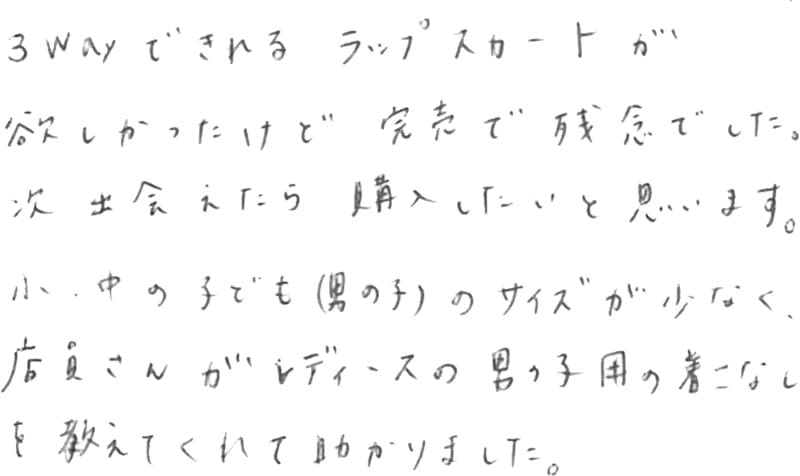 3wayできれる ラップスカートが
欲しかったけど 完売で残念でした。
次 出会えたら 購入したいと思います。
小、中の子ども(男の子)のサイズが少なく、
店員さんがレディースの男の子用の着こなし
を教えてくれて助かりました。